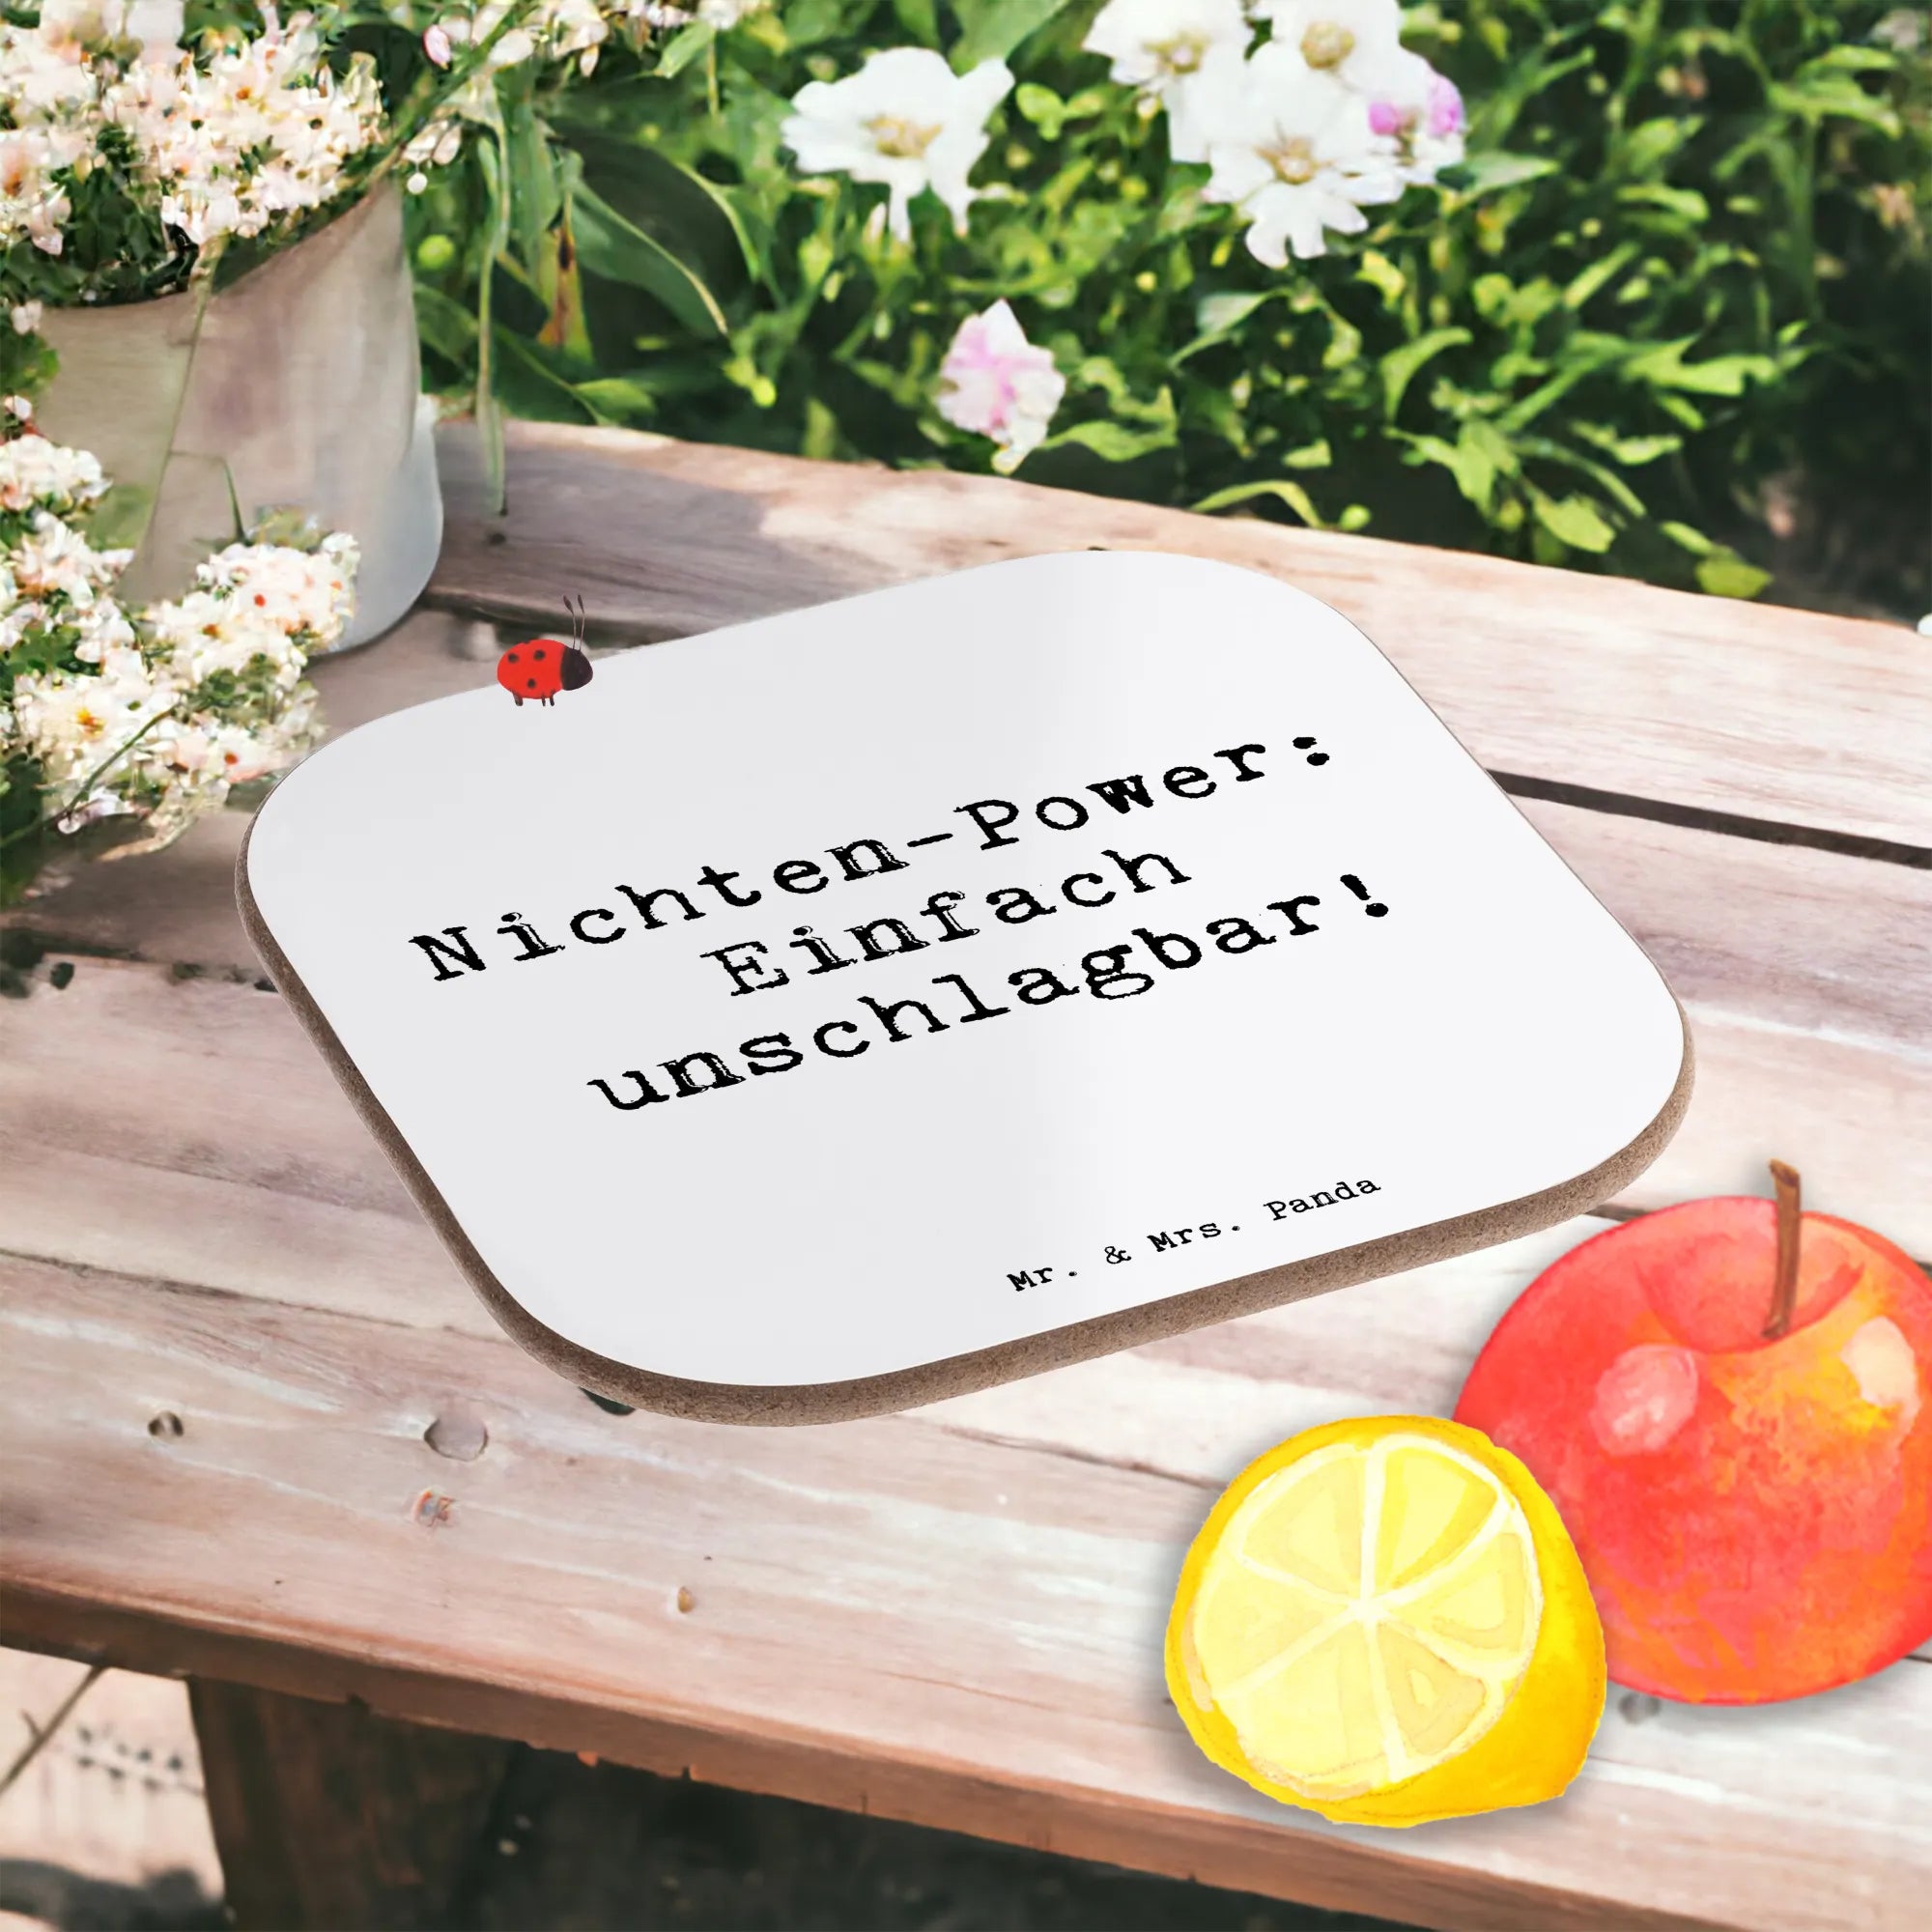 Nichten-Power:
Einfach
unschlagbar!
Mr. & Mrs. Panda